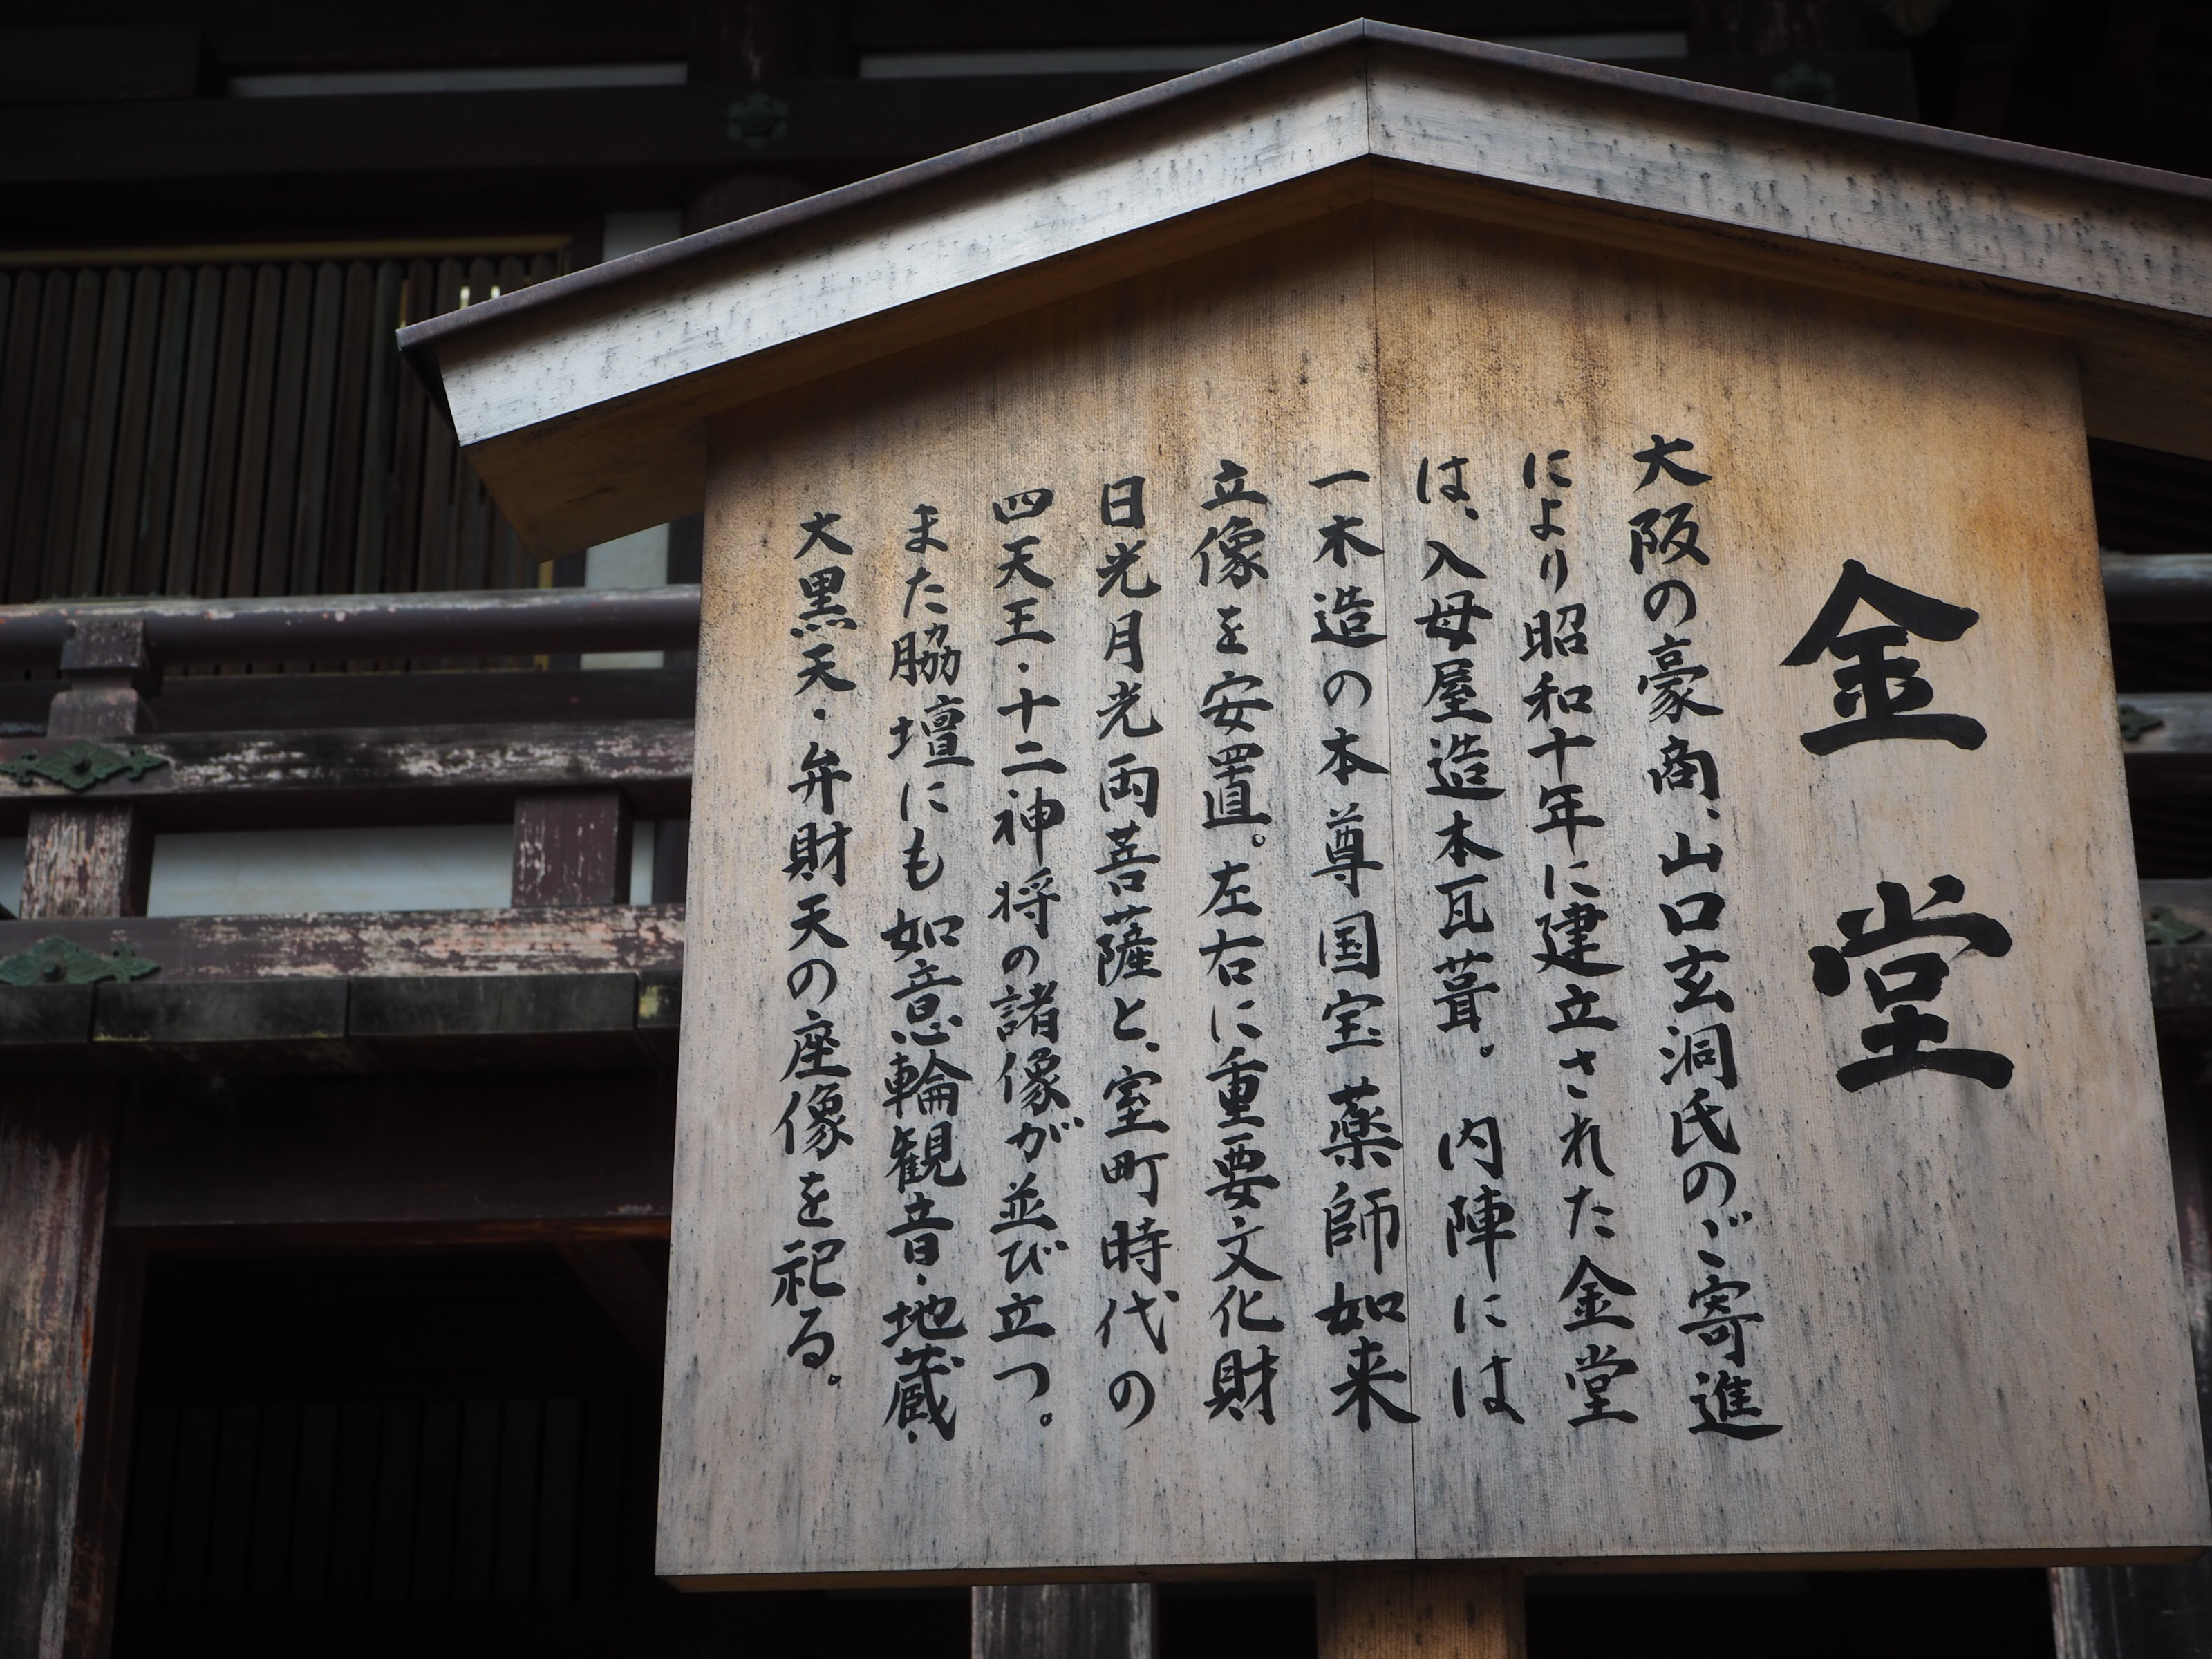 金堂
大阪の豪商、山口玄洞氏のご寄進
により昭和十年に建立された金堂
は、入母屋造本瓦葺。内陣には
一木造の本尊国宝薬師如来
立像を安置。左右に重要文化財
日光月光両菩薩と、室町時代の
四天王・十二神将の諸像が並び立つ。
また脇壇にも如意輪観音・地蔵・
大黒天・弁財天の座像を祀る。